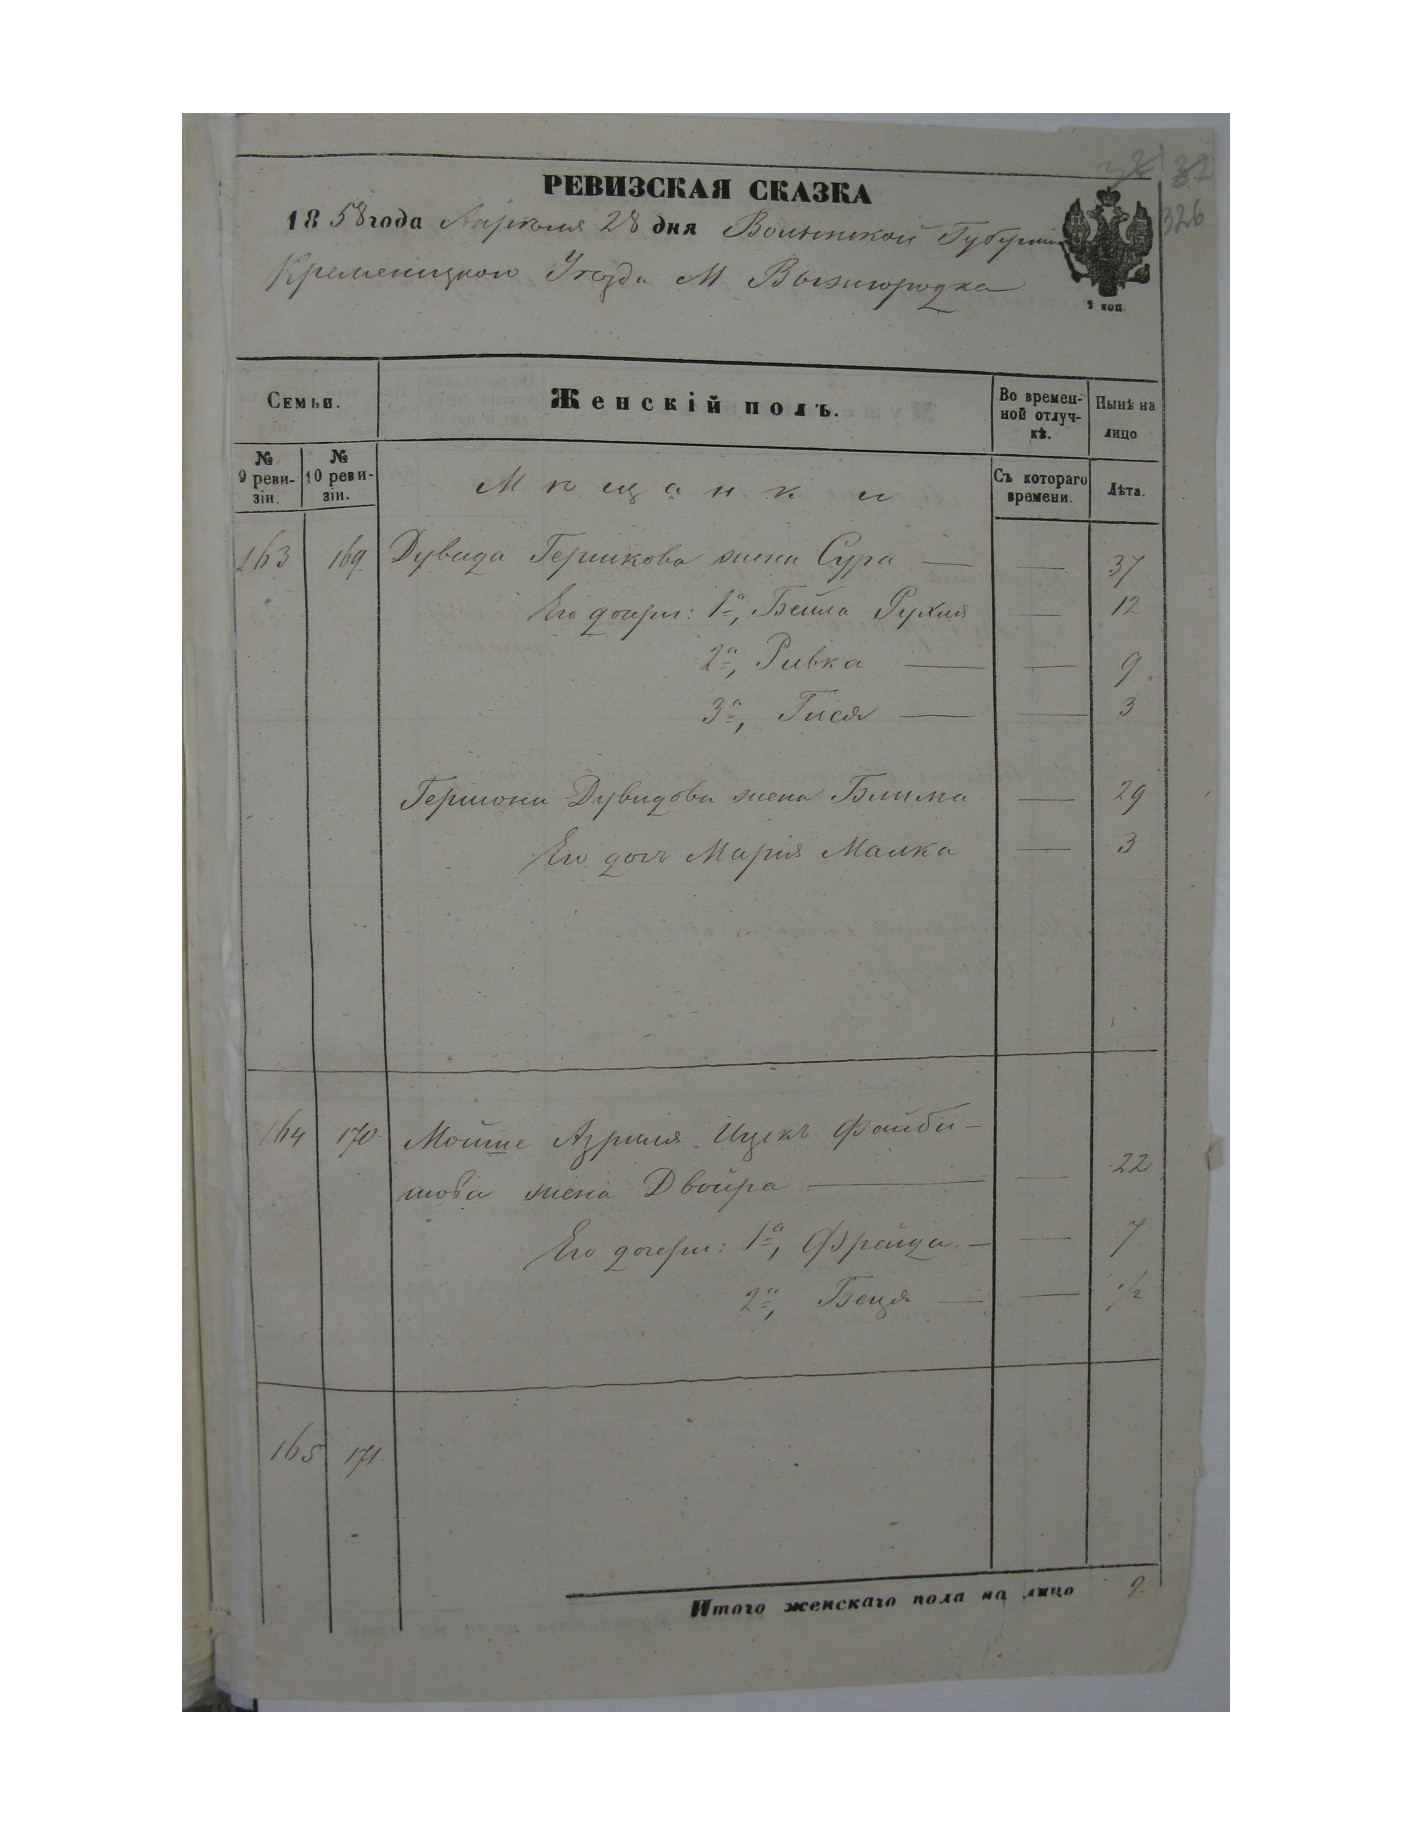 32 32
РЕВИЗСКАЯ СКАЗКА
1858 года Апреля 28 дня Волынской Губернии
326
Кременецкого Уезда М Вышгородка
2 коп.
Семьи.
Женскій полъ.
Во времен-
ной отлуч-
кѣ.
Нынѣ на
лицо
№
9 реви-
зіи.
№
10 реви-
зіи.
Мещанки
Съ котораго
времени.
Лѣта.
163 169. Дувида Гершкова жена Сура — — 37
Его дочери: 1а, Бейла Рухля — 12
2а, Ривка — — 9
3а, Гися — — 3
Гершона Дувидова жена Блима — 29
Его дочь Марія Малка — 3
164 170. Мойше Азриля Ицекъ Файби-
шова жена Двойра — — 22
Его дочери: 1а, Фрейда — — 7
2а, Беця — — 1/2
165 171.
Итого женскаго пола на лицо 9.